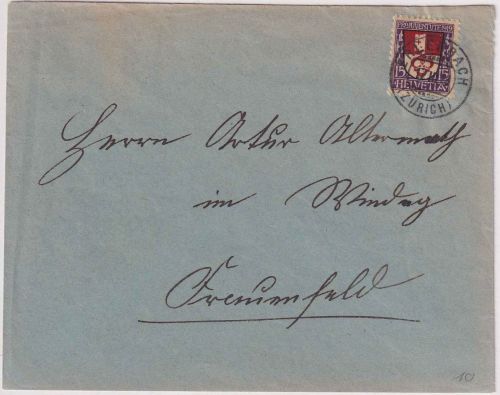 PRO JUVENTUTE 1919
15 15
HELVETIA
BACH
(ZÜRICH)
Herrn Artur Altermath
im Windeg
Frauenfeld
10